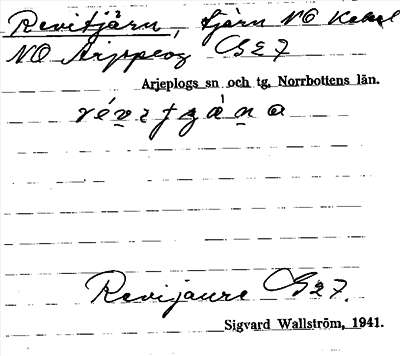 Revitjärn, tjärn NO Kakel
NO Arjeplog G27
Arjeplogs sn och tg. Norrbottens län.
Revijaure G27.
Sigvard Wallström, 1941.